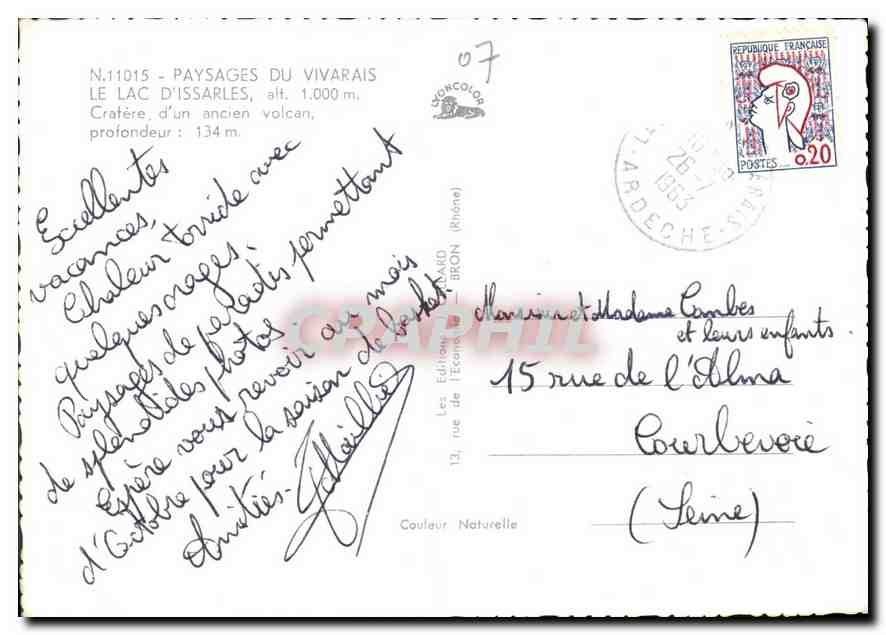 N.11015 - PAYSAGES DU VIVARAIS
LE LAC D'ISSARLES, alt. 1.000 m.
Cratère d'un ancien volcan,
profondeur : 134 m.
07
LYONCOLOR
REPUBLIQUE FRANÇAISE
POSTES 0,20
26-7
1963
ARDECHE
Excellentes
vacances,
Chaleur torride avec
quelques orages.
Paysages de paradis permettant
de splendides photos.
Espère vous revoir au mois
d'Octobre pour la saison de basket.
Amitiés.
Les Editions
13, rue de l'Econo — BRON (Rhône)
Couleur Naturelle
Monsieur et Madame Combes
et leurs enfants.
15 rue de l'Alma
Courbevoie
(Seine)
CRAPHIL